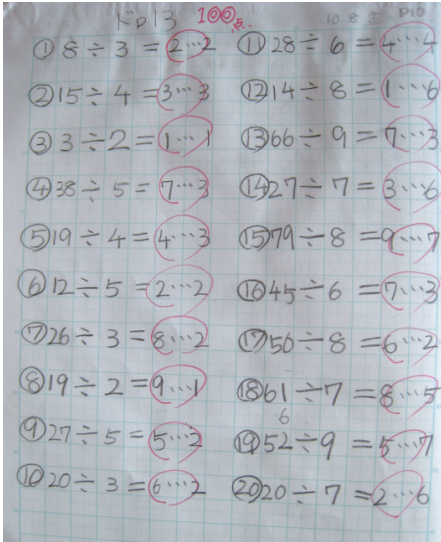 ドリル13 100点 10 8 P10
① 8 ÷ 3 = 2…2
② 15 ÷ 4 = 3…3
③ 3 ÷ 2 = 1…1
④ 38 ÷ 5 = 7…3
⑤ 19 ÷ 4 = 4…3
⑥ 12 ÷ 5 = 2…2
⑦ 26 ÷ 3 = 8…2
⑧ 19 ÷ 2 = 9…1
⑨ 27 ÷ 5 = 5…2
⑩ 20 ÷ 3 = 6…2
⑪ 28 ÷ 6 = 4…4
⑫ 14 ÷ 8 = 1…6
⑬ 66 ÷ 9 = 7…3
⑭ 27 ÷ 7 = 3…6
⑮ 79 ÷ 8 = 9…7
⑯ 45 ÷ 6 = 7…3
⑰ 50 ÷ 8 = 6…2
⑱ 61 ÷ 7 = 8…5
6
⑲ 52 ÷ 9 = 5…7
⑳ 20 ÷ 7 = 2…6